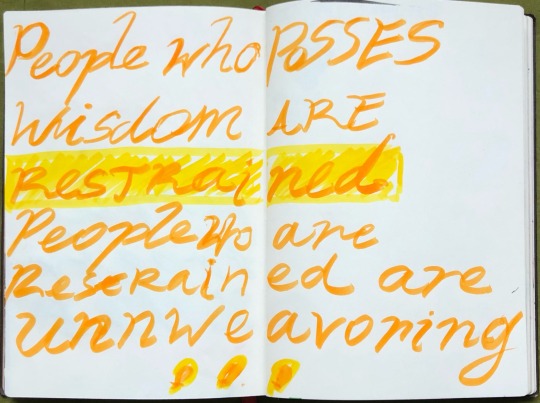 People who POSSES
Wisdom ARE
RESTRained
People who are
Restrained are
unnweavoring
...